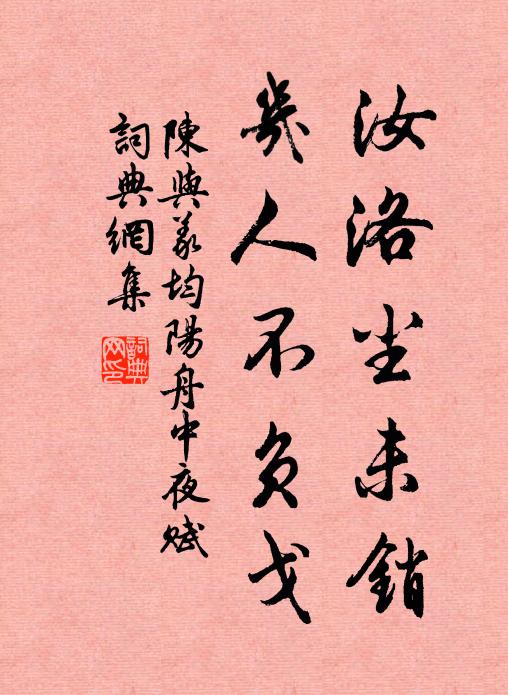 汝洛尘未銷
幾人不负戈
陳與義均陽舟中夜赋
詞典網集
詞典网印